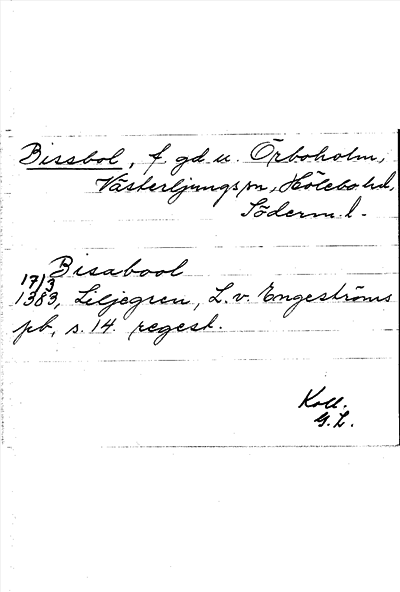 Bissbol, f. gd u. Örboholm,
Västerljungs sn, Hölebo hd,
Söderm. l.
Bisabool
17/3
1383, Liljegren, L. v. Engeströms
pb, s. 14. regest.
Koll.
G. L.